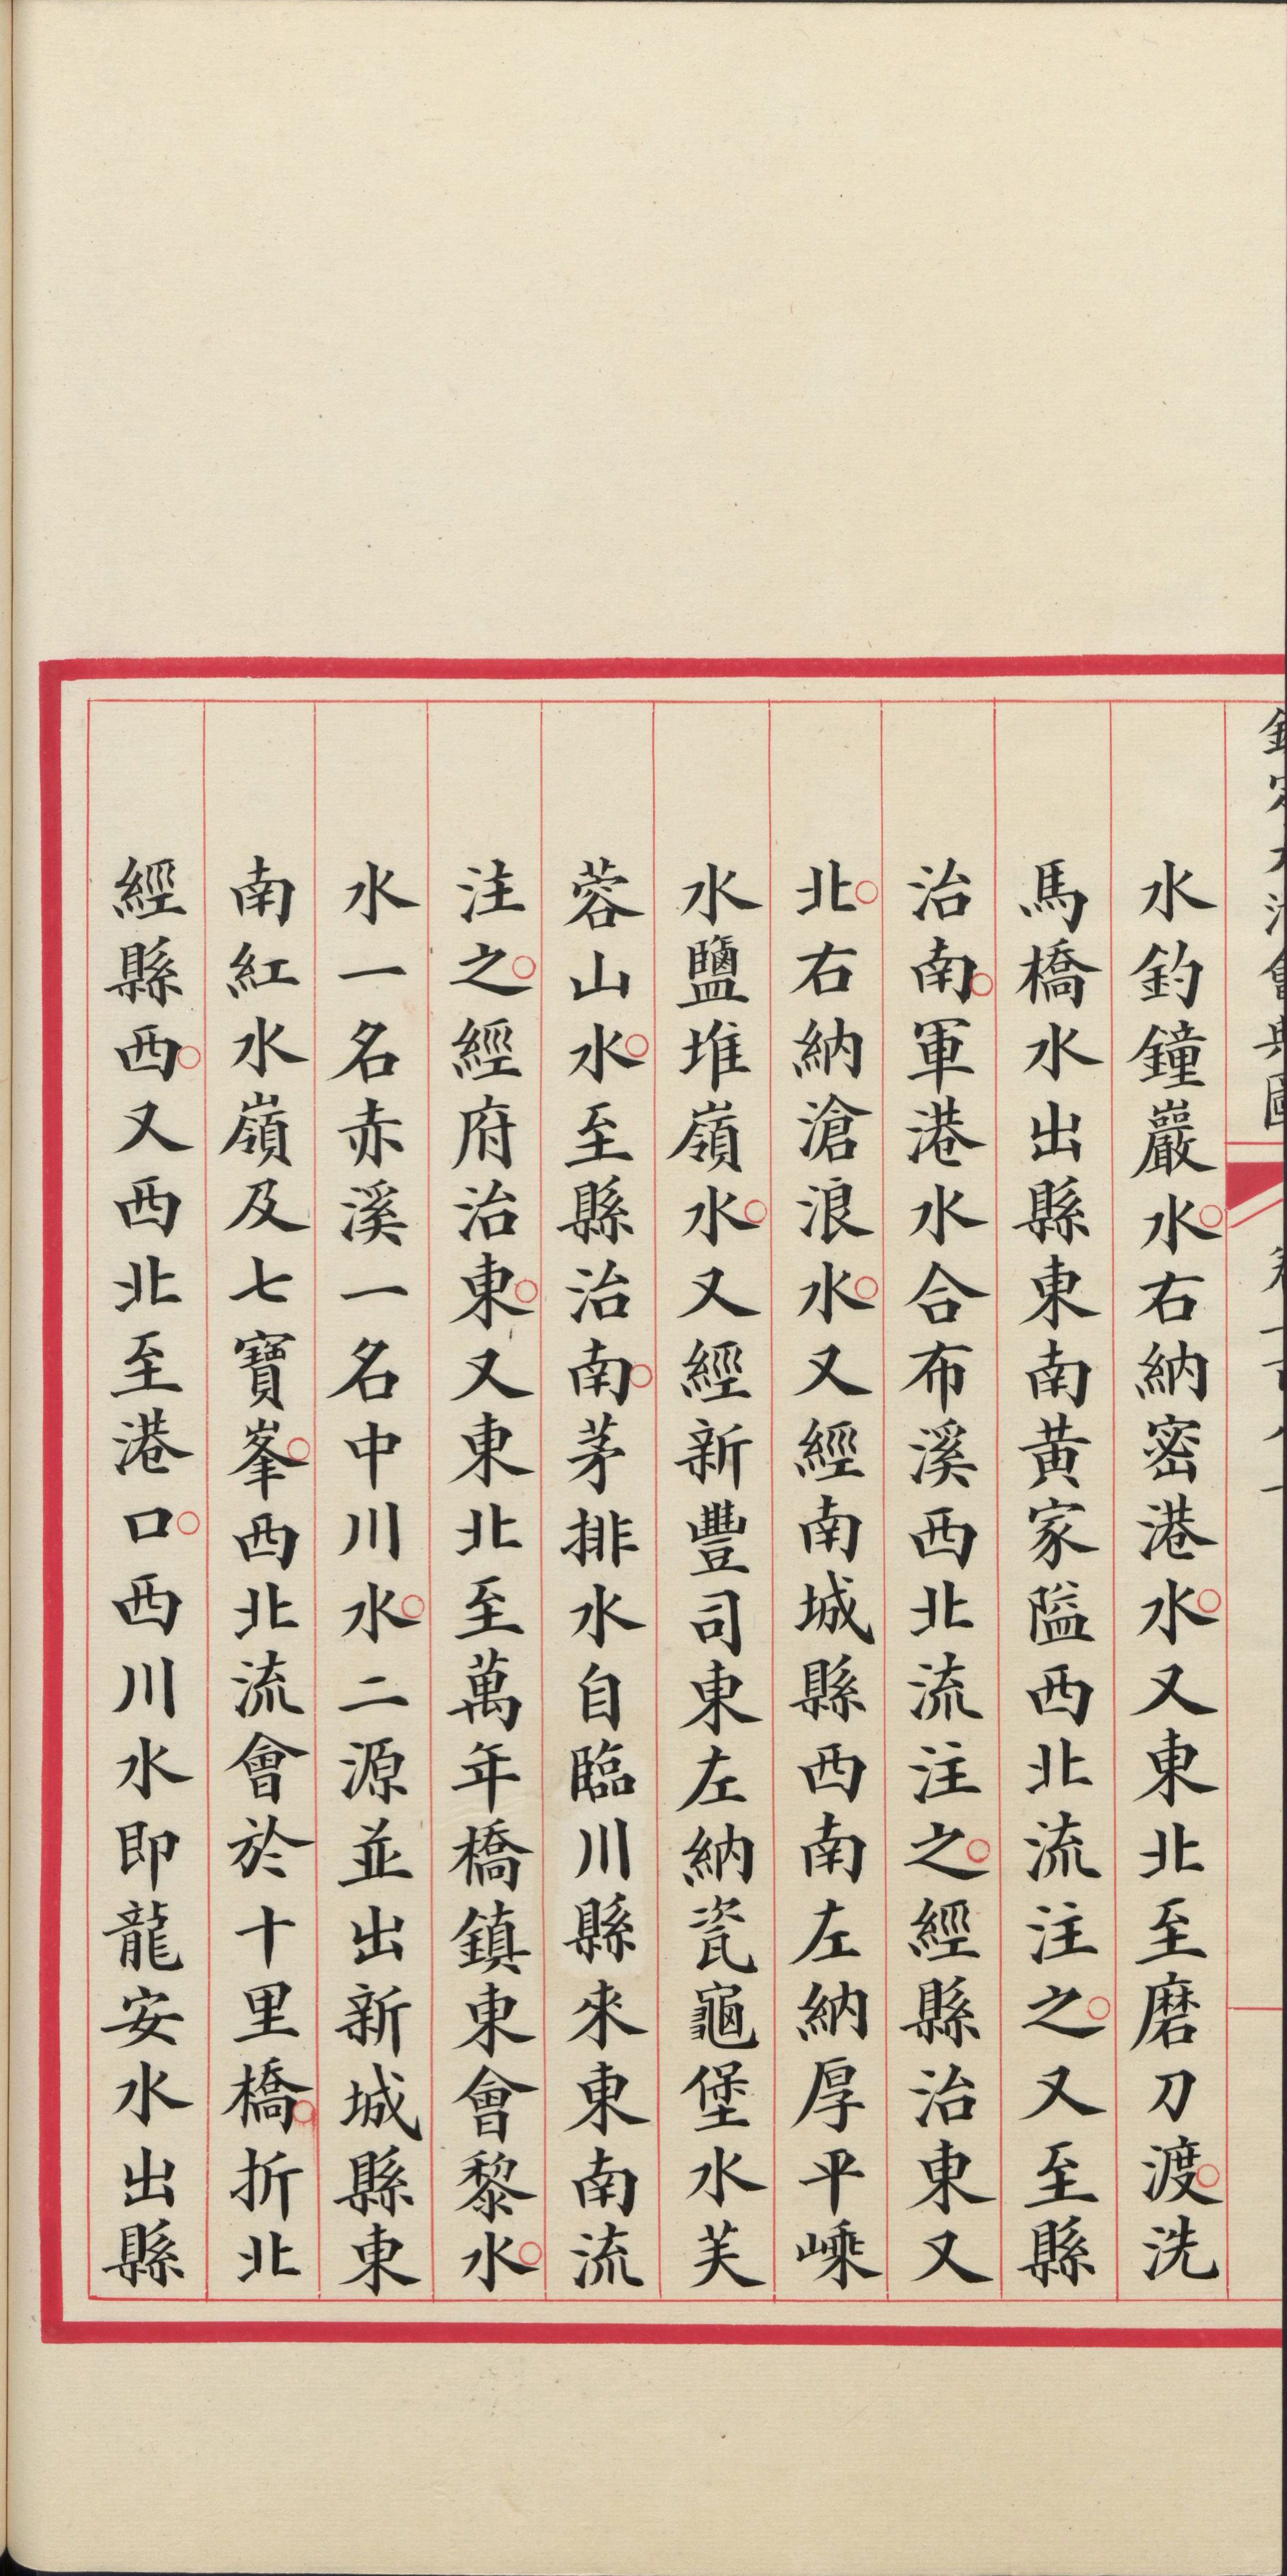 水釣鐘巖水○右納密港水○又東北至磨刀渡○洗
馬橋水出縣東南黃家隘西北流注之○又至縣
治南○軍港水合布溪西北流注之○經縣治東又
北○右納滄浪水○又經南城縣西南左納厚平嵊
水鹽堆嶺水○又經新豐司東左納瓷龜堡水芙
蓉山水○至縣治南○茅排水自臨川縣來東南流
注之○經府治東○又東北至萬年橋鎮東會黎水○
水一名赤溪一名中川水○二源並出新城縣東
南紅水嶺及七寶峯○西北流會於十里橋○折北
經縣西○又西北至港口○西川水即龍安水出縣